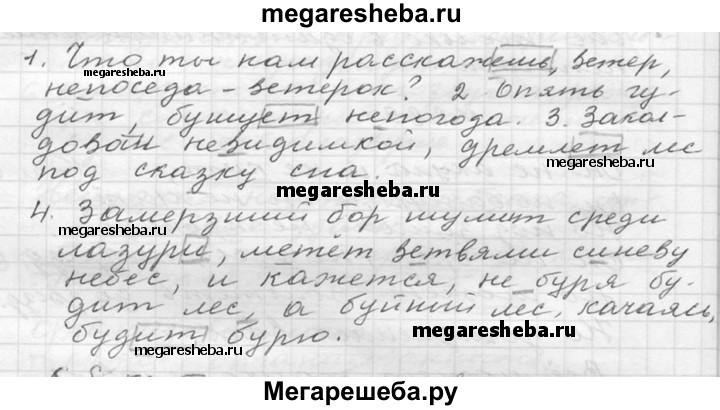 megaresheba.ru
1. Что ты нам расскажешь, ветер,
megaresheba.ru
непоседа - ветерок? 2 Опять гу-
megaresheba.ru
дит, бушует непогода. 3. Закол-
дован невидимкой, дремлет лес
megaresheba.ru
под сказку сна.
megaresheba.ru
4. Замерзший бор шумит среди
megaresheba.ru
лазури, метёт ветвями синеву
небес, и кажется, не буря бу-
дит лес, а буйный лес, качаясь,
megaresheba.ru
будит бурю.
megaresheba.ru
Мегарешеба.ру